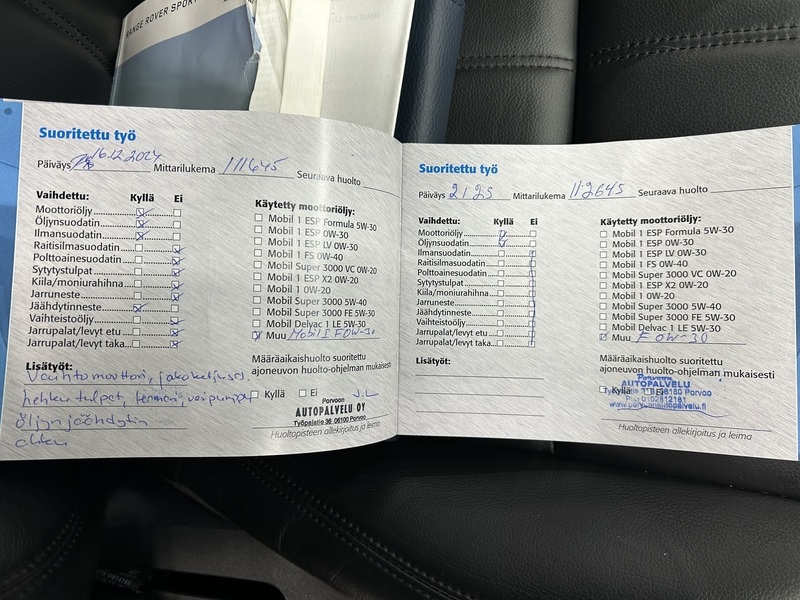 RANGE ROVER SPORT
Suoritettu työ
Päiväys 16.12.2024 Mittarilukema 111645 Seuraava huolto
Vaihdettu: Kyllä Ei
Moottoriöljy
Öljynsuodatin
Ilmansuodatin
Raitisilmasuodatin
Polttoainesuodatin
Sytytystulpat
Kiila/moniurahihna
Jarruneste
Jäähdytinneste
Vaihteistoöljy
Jarrupalat/levyt etu
Jarrupalat/levyt taka
Lisätyöt:
Vaihtomoottori, jakoketjusrj.
hehkutulpat, termari, vesipumppu
öljynjäähdytin
Käytetty moottoriöljy:
Mobil 1 ESP Formula 5W-30
Mobil 1 ESP 0W-30
Mobil 1 ESP LV 0W-30
Mobil 1 FS 0W-40
Mobil Super 3000 VC 0W-20
Mobil 1 ESP X2 0W-20
Mobil 1 0W-20
Mobil Super 3000 5W-40
Mobil Super 3000 FE 5W-30
Mobil Delvac 1 LE 5W-30
Muu Mobil 1 F 0W-30
Määräaikaishuolto suoritettu
ajoneuvon huolto-ohjelman mukaisesti
Kyllä Ei
Porvoon
AUTOPALVELU OY
Työpajatie 36 06100 Porvoo
Huoltopisteen allekirjoitus ja leima
Suoritettu työ
Päiväys 2.1.25 Mittarilukema 112645 Seuraava huolto
Vaihdettu: Kyllä Ei
Moottoriöljy
Öljynsuodatin
Ilmansuodatin
Raitisilmasuodatin
Polttoainesuodatin
Sytytystulpat
Kiila/moniurahihna
Jarruneste
Jäähdytinneste
Vaihteistoöljy
Jarrupalat/levyt etu
Jarrupalat/levyt taka
Lisätyöt:
Käytetty moottoriöljy:
Mobil 1 ESP Formula 5W-30
Mobil 1 ESP 0W-30
Mobil 1 ESP LV 0W-30
Mobil 1 FS 0W-40
Mobil Super 3000 VC 0W-20
Mobil 1 ESP X2 0W-20
Mobil 1 0W-20
Mobil Super 3000 5W-40
Mobil Super 3000 FE 5W-30
Mobil Delvac 1 LE 5W-30
Muu F 0W-30
Määräaikaishuolto suoritettu
ajoneuvon huolto-ohjelman mukaisesti
Kyllä Ei
Porvoon
AUTOPALVELU
Porvoo
www.porvoonautopalvelu.fi
Huoltopisteen allekirjoitus ja leima